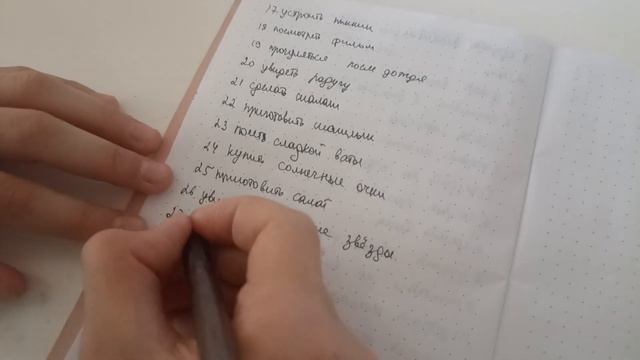 17 устроить пикник
18 посмотреть фильм
19 прогуляться после дождя
20 увидеть радугу
21 сделать шалаш
22 приготовить шашлыки
23 поесть сладкой ваты
24 купить солнечные очки
25 приготовить салат
26 звёзды
27